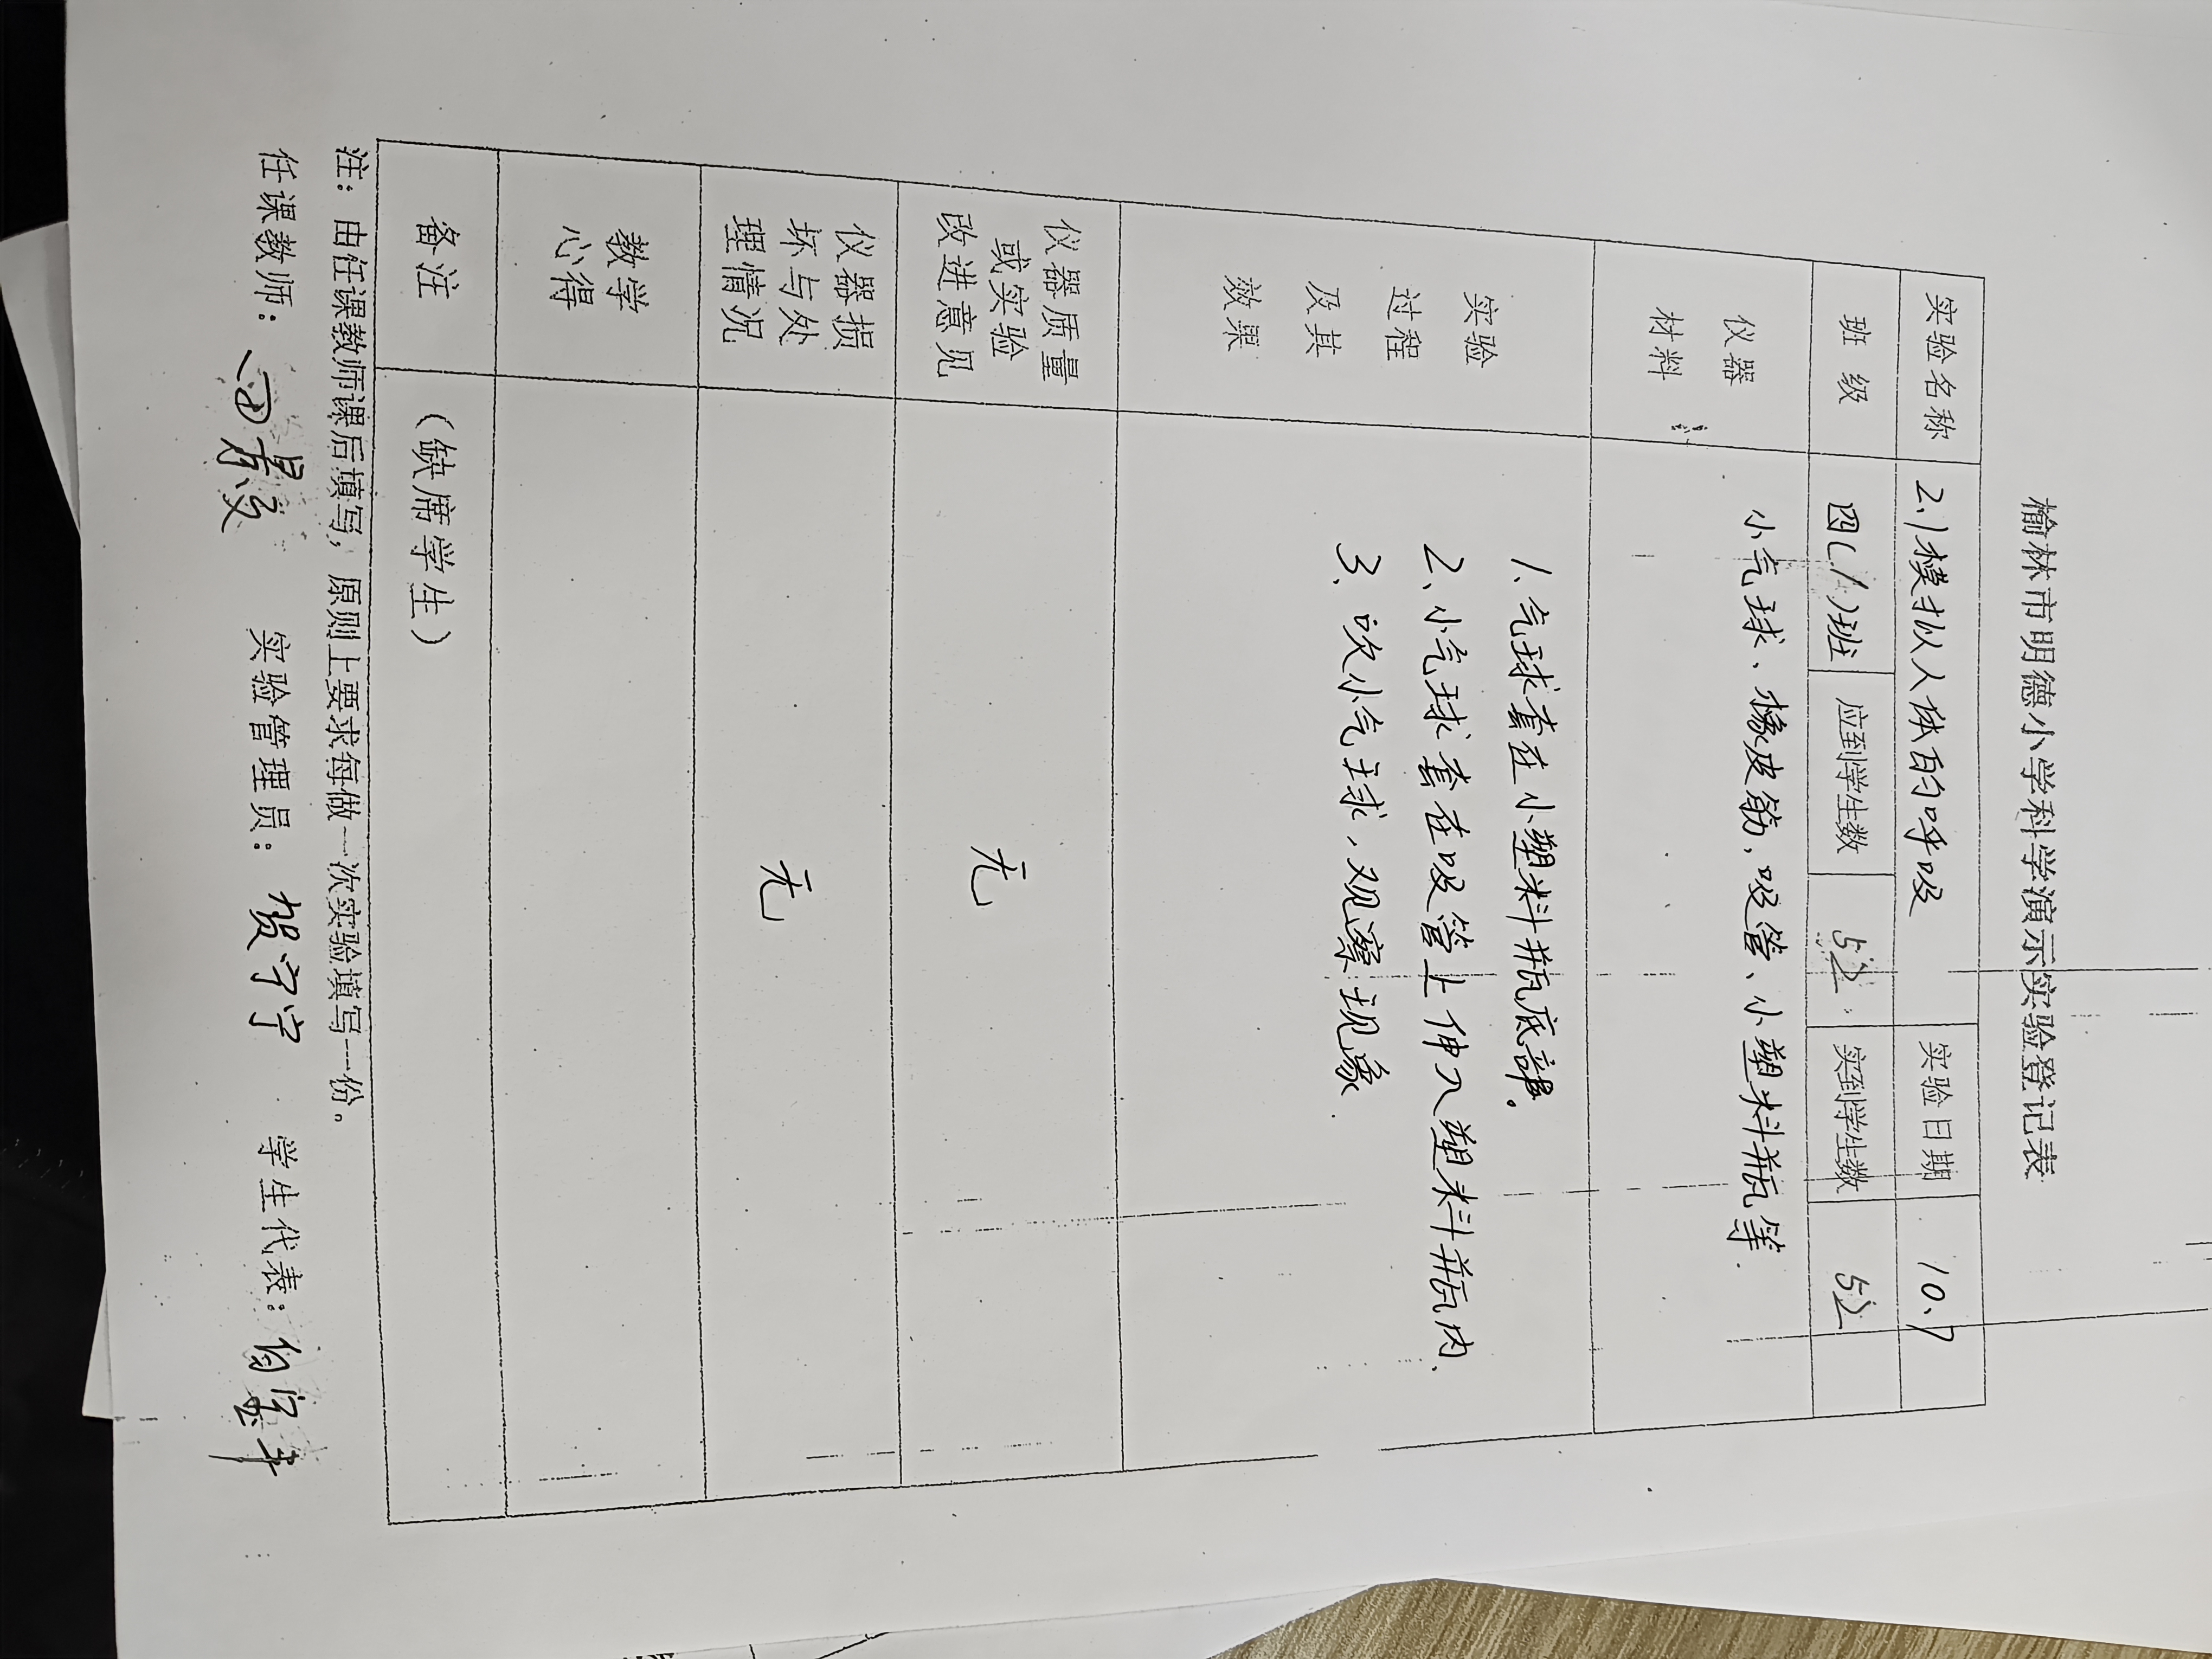 榆林市明德小学科学演示实验登记表
实验名称 2.1模拟人体的呼吸 实验日期 10.9
班级 四(1)班 应到学生数 52 实到学生数 52
仪器
材料
小气球、橡皮筋、吸管、小塑料瓶等.
实验
过程
及其
效果
1、气球套在小塑料瓶底部。
2、小气球套在吸管上伸入塑料瓶内、
3、吹小气球,观察现象.
仪器质量
或实验
改进意见
无
仪器损
坏与处
理情况
无
教学
心得
备注 (缺席学生)
注:由任课教师课后填写,原则上要求每做一次实验填写一份。
任课教师: 实验管理员:贺宁宁 学生代表: